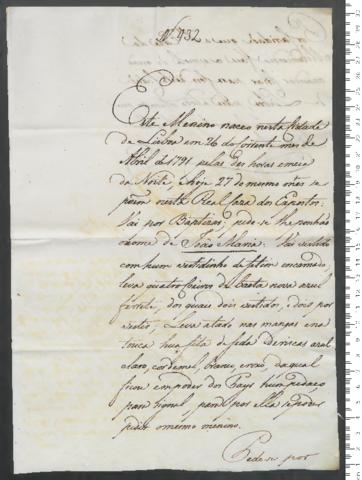 N. 932
Este Menino naceo nesta Cidade
de Lisboa em 26 do corrente mes de
Abril de 1791 pelas dez horas e meia
da Noite, e hoje 27 do mesmo mes se
poem nesta Real Caza dos Expostos:
Vai por Baptizar; pede-se lhe ponhão
o nome de João Maria: Vai vestido
com hum vestidinho de encarnado,
leva quatro de Baeta nova azul
ferrete, dos quais dois vestidos, e dois por
vestir; Leva atado nas mangas e na
touca hua fita de seda de riscas azul
claro, cor de , branco, e roxo, da qual
fica em poder dos Pays hum pedaço
para signal, para por ella se poder
pedir o mesmo menino.
Pede-se por